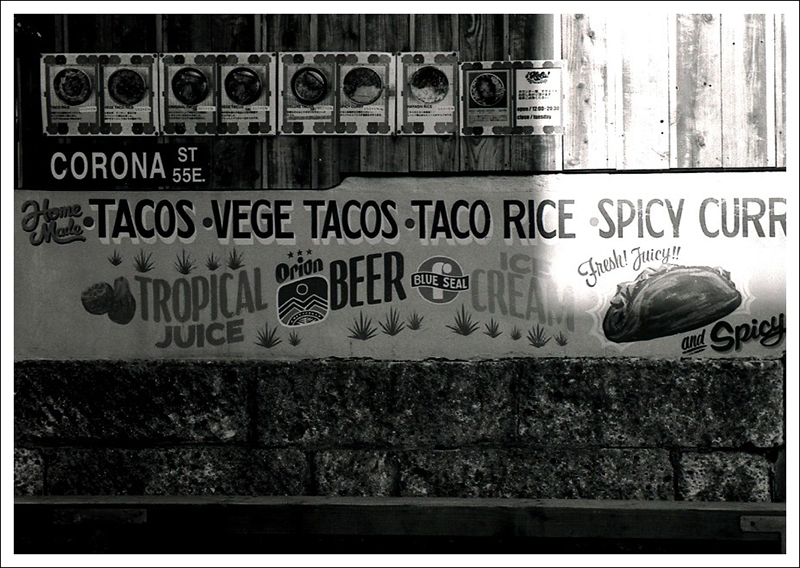 open / 12:00-20:30
close / tuesday
CORONA ST 55E.
Home Made • TACOS • VEGE TACOS • TACO RICE • SPICY CURR
Fresh! Juicy!!
TROPICAL JUICE
Orion BEER
BLUE SEAL ICE CREAM
and Spicy